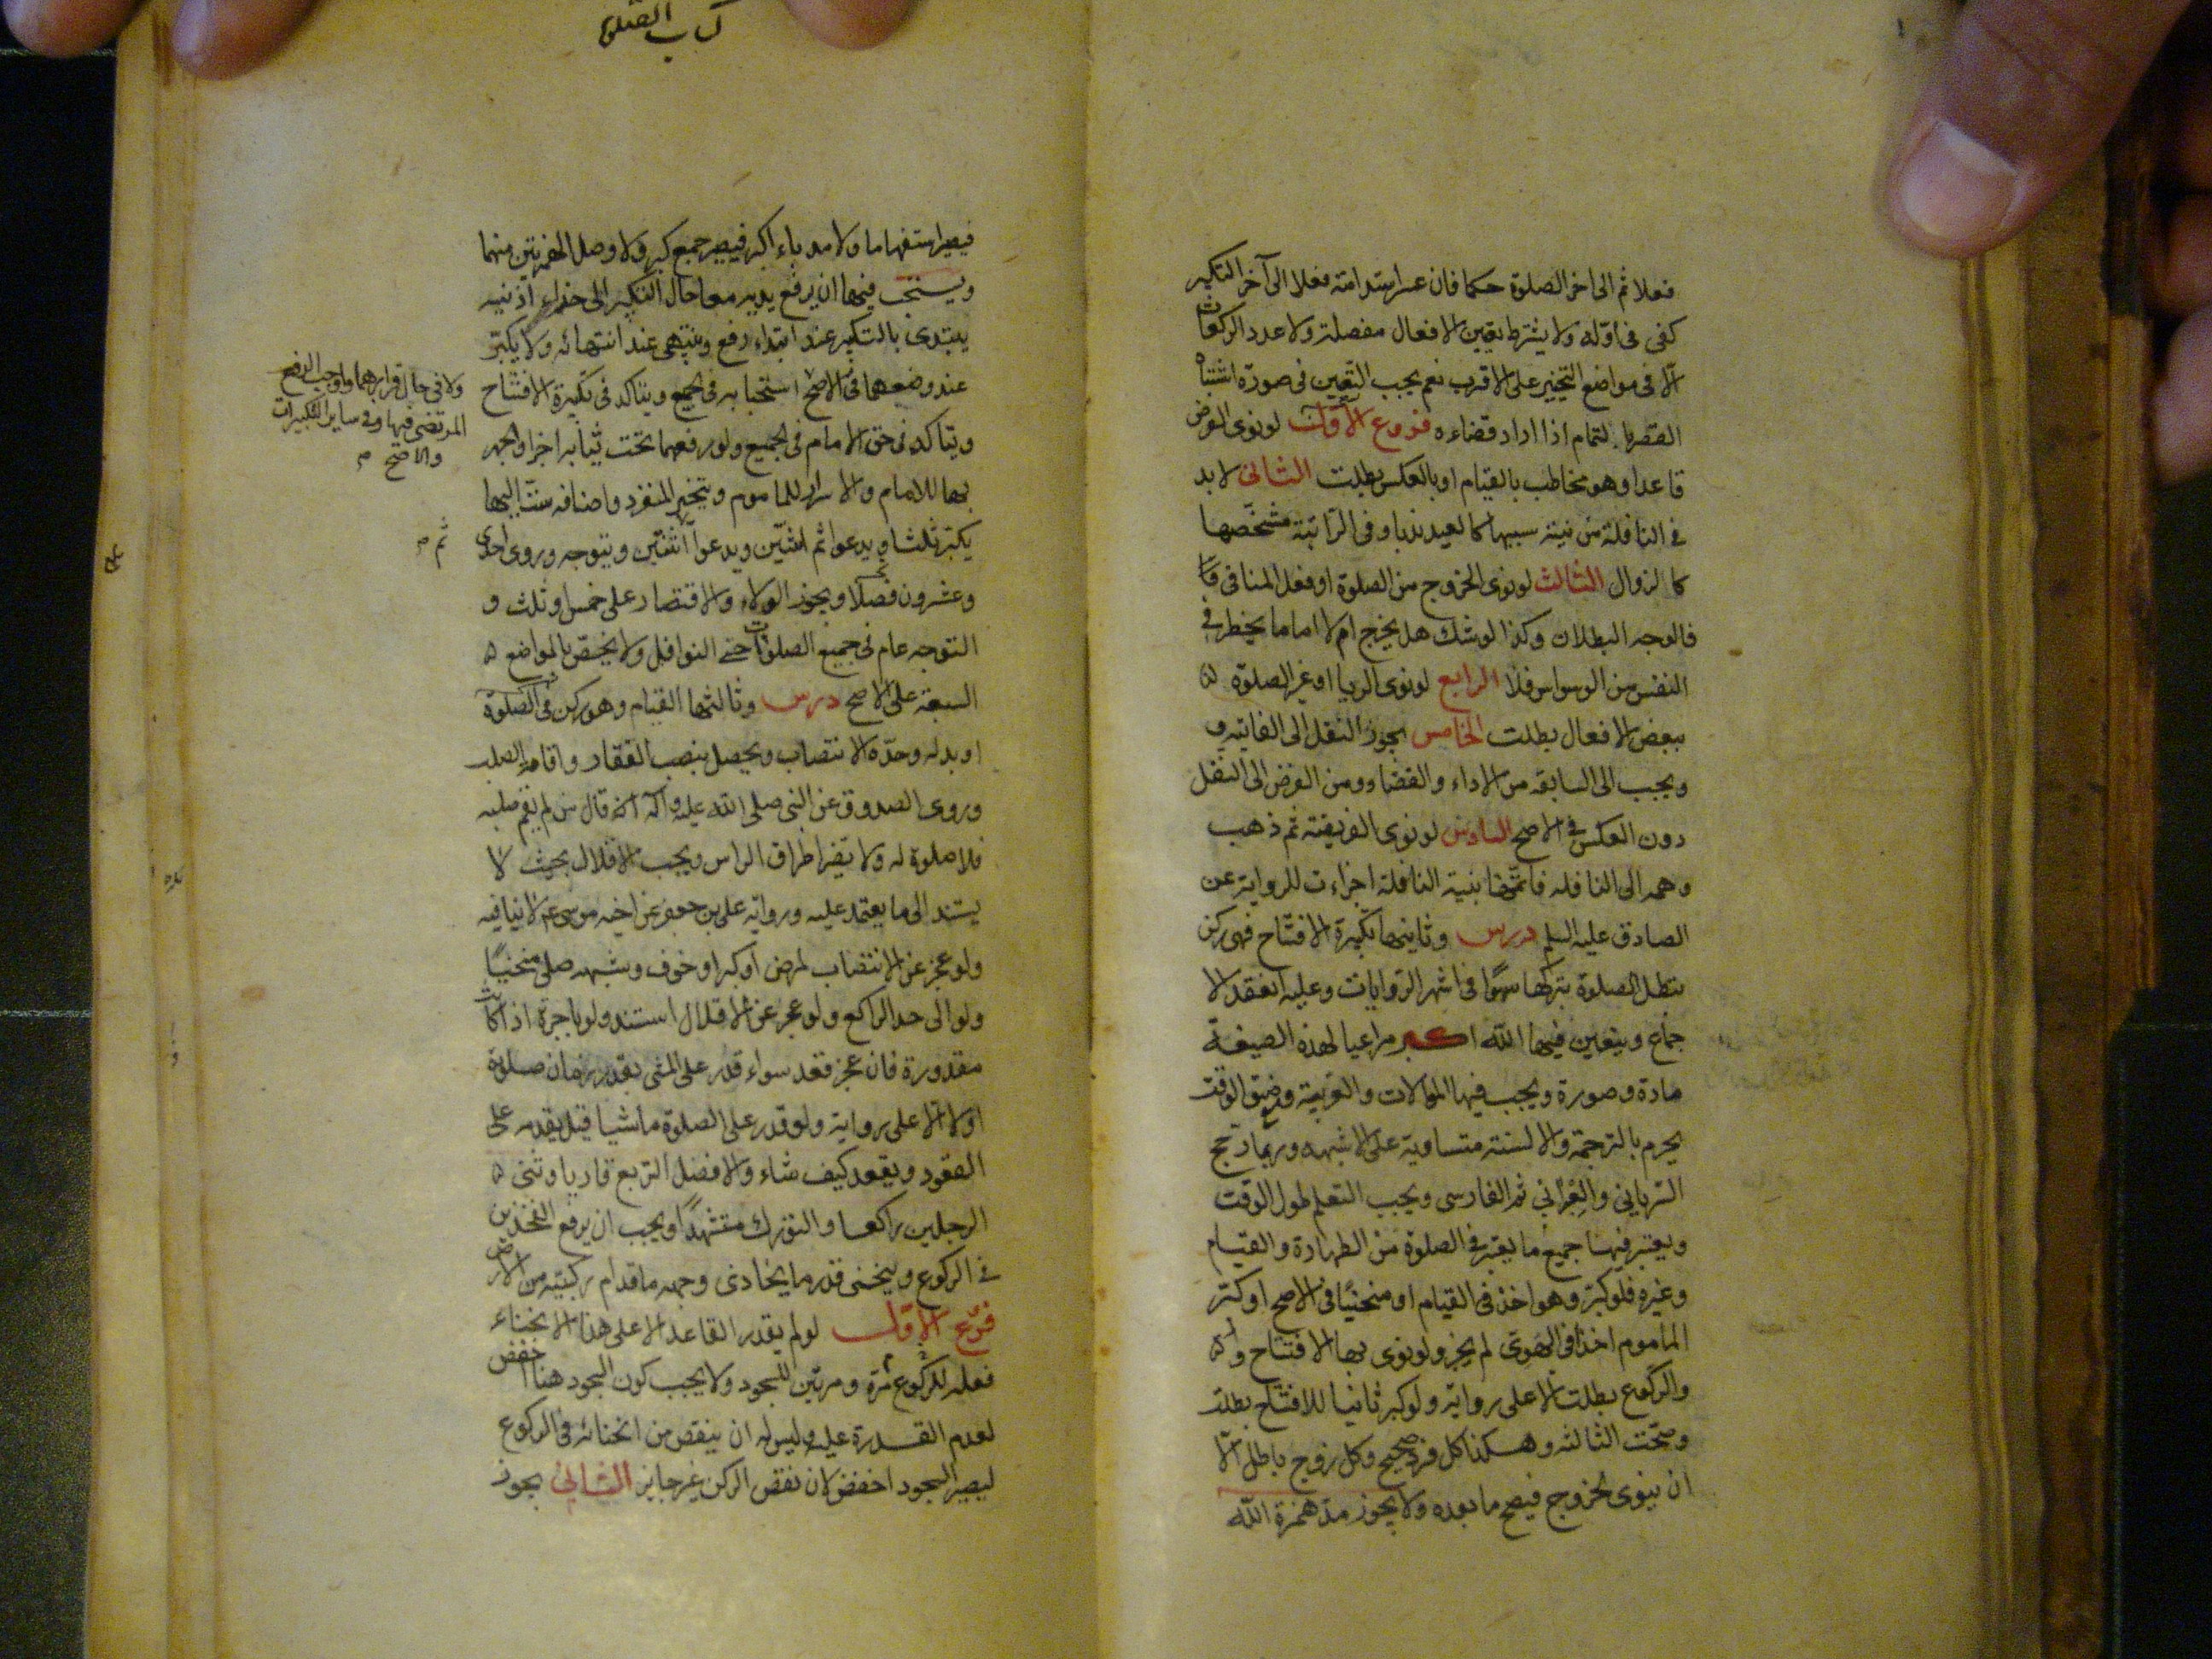 فعلا ثم الى اخر الصلوة حكما فان عسر استدامته فعلا الى آخر التكبير
كفى فى اوله ولا يشترط تعيين الافعال مفصلة ولا عدد الركعات
الا فى مواضع التخيير على الاقرب نعم يجب التعيين فى صورة اشتباه
القصر بالتمام اذا اراد قضاءه فروع الاول لو نوى الفرض
قاعدا وهو مخاطب بالقيام او بالعكس بطلت الثانى لا بد
فى النافلة من نية سببها كالعيد ندبا وفى الراتبة مشخصها
كالزوال الثالث لو نوى الخروج من الصلوة او فعل المنافى
فالوجه البطلان وكذا لو شك هل يخرج ام لا اما ما يخطر فى
النفس من الوسواس فلا الرابع لو نوى الريا او غير الصلوة
ببعض الافعال بطلت الخامس يجوز النقل الى الفايته
ويجب الى السابقه من الاداء والقضا ومن الفرض الى النفل
دون العكس فى الاصح السادس لو نوى الفريضة ثم ذهب
وهمه الى النافله فاتمها بنية النافلة اجزاءت للرواية عن
الصادق عليه السلم درس وثانيها تكبيرة الافتتاح فهى ركن
تبطل الصلوة بتركها سهوا فى اشهر الروايات وعليه انعقد الا
جماع ويتعين فيها الله اكبر مراعيا لهذه الصيغة
مادة وصورة ويجب فيها الموالات والعربية ومع ضيق الوقت
يحرم بالترجمة والالسنة متساوية على الاشبه وربما رجح
السريانى والعبرانى ثم الفارسى ويجب التعلم طول الوقت
ويعتبر فيها جميع ما يعتبر فى الصلوة من الطهارة والقيام
وغيره فلو كبر وهو اخذ فى القيام او منحنيا فى الاصح او كبر
الماموم اخذا فى الهوى لم يجز ولو نوى بها الافتتاح
والركوع بطلت الا على رواية ولو كبر ثانيا للافتتاح بطلت
وصحت الثالثه وهكذا كل فرد صحيح وكل زوج باطل الا
ان ينوى الخروج فيصح ما بعده ولا يجوز مد همزة الله
كتاب الصلوة
فيصير استفهاما ولا مد باء اكبر فيصير جمع كبر ولا وصل الهمزتين منهما
ويستحب فيها ان يرفع يديه معا حال التكبير الى حذاء اذنيه
يبتدى بالتكبير عند ابتداء رفع وينتهى عند انتهائه ولا يكبر
عند وضعهما فى الاصح استحبابه فى الجميع ويتاكد فى تكبيرة الافتتاح
ويتاكد فى حق الامام فى الجميع ولو رفعهما تحت ثيابه اجزا والجهر
بها للامام والاسرار للماموم ويتخير المنفرد واضافه ست اليها
يكبر ثلثا ويدعوا ثم اثنتين ويدعوا اثنتين ويتوجه وروى احدى
وعشرون فصلا ويجوز الولاء والاقتصار على خمس او ثلث و
التوجه عام فى جميع الصلوات حتى النوافل ولا يختص بالمواضع
السبعة على الاصح درس وثالثها القيام وهو ركن فى الصلوة
او بدله وحده الانتصاب ويحصل بنصب الفقار واقامة الصلب
وروى الصدوق عن النبى صلى الله عليه وآله انه قال من لم يقم صلبه
فلا صلوة له ولا يضر اطراق الراس ويجب الاقلال بحيث لا
يستند الى ما يعتمد عليه ورواية على بن جعفر عن اخيه موسى لا ينافيه
ولو عجز عن الانتصاب لمرض او كبر او خوف وشبهه صلى منحنيا
ولو الى حد الراكع ولو عجز عن الاقلال استند ولو باجرة اذا كانت
مقدورة فان عجز قعد سواء قدر على المشى بقدر زمان صلوة
اولا الا على رواية ولو قدر على الصلوة ماشيا قيل يقدمه على
القعود ويقعد كيف شاء والافضل التربع قاريا وثنى
الرجلين راكعا والتورك متشهدا ويجب ان يرفع الفخذين
فى الركوع وينحنى قدر ما يحاذى وجهه ما قدام ركبتيه من الارض
فرع الاول لو لم يقدر القاعد الا على هذا الانحناء
فعله للركوع مرة ومرتين للسجود ولا يجب كون السجود هنا اخفض
لعدم القدرة عليه وليس له ان ينقص من انحنائه فى الركوع
ليصير السجود اخفض لان نقض الركن غير جايز الثانى يجوز
ولا فى حال قرارهما واوجب الرفع
المرتضى فيها وفى ساير التكبيرات
والاصح م
ثم م